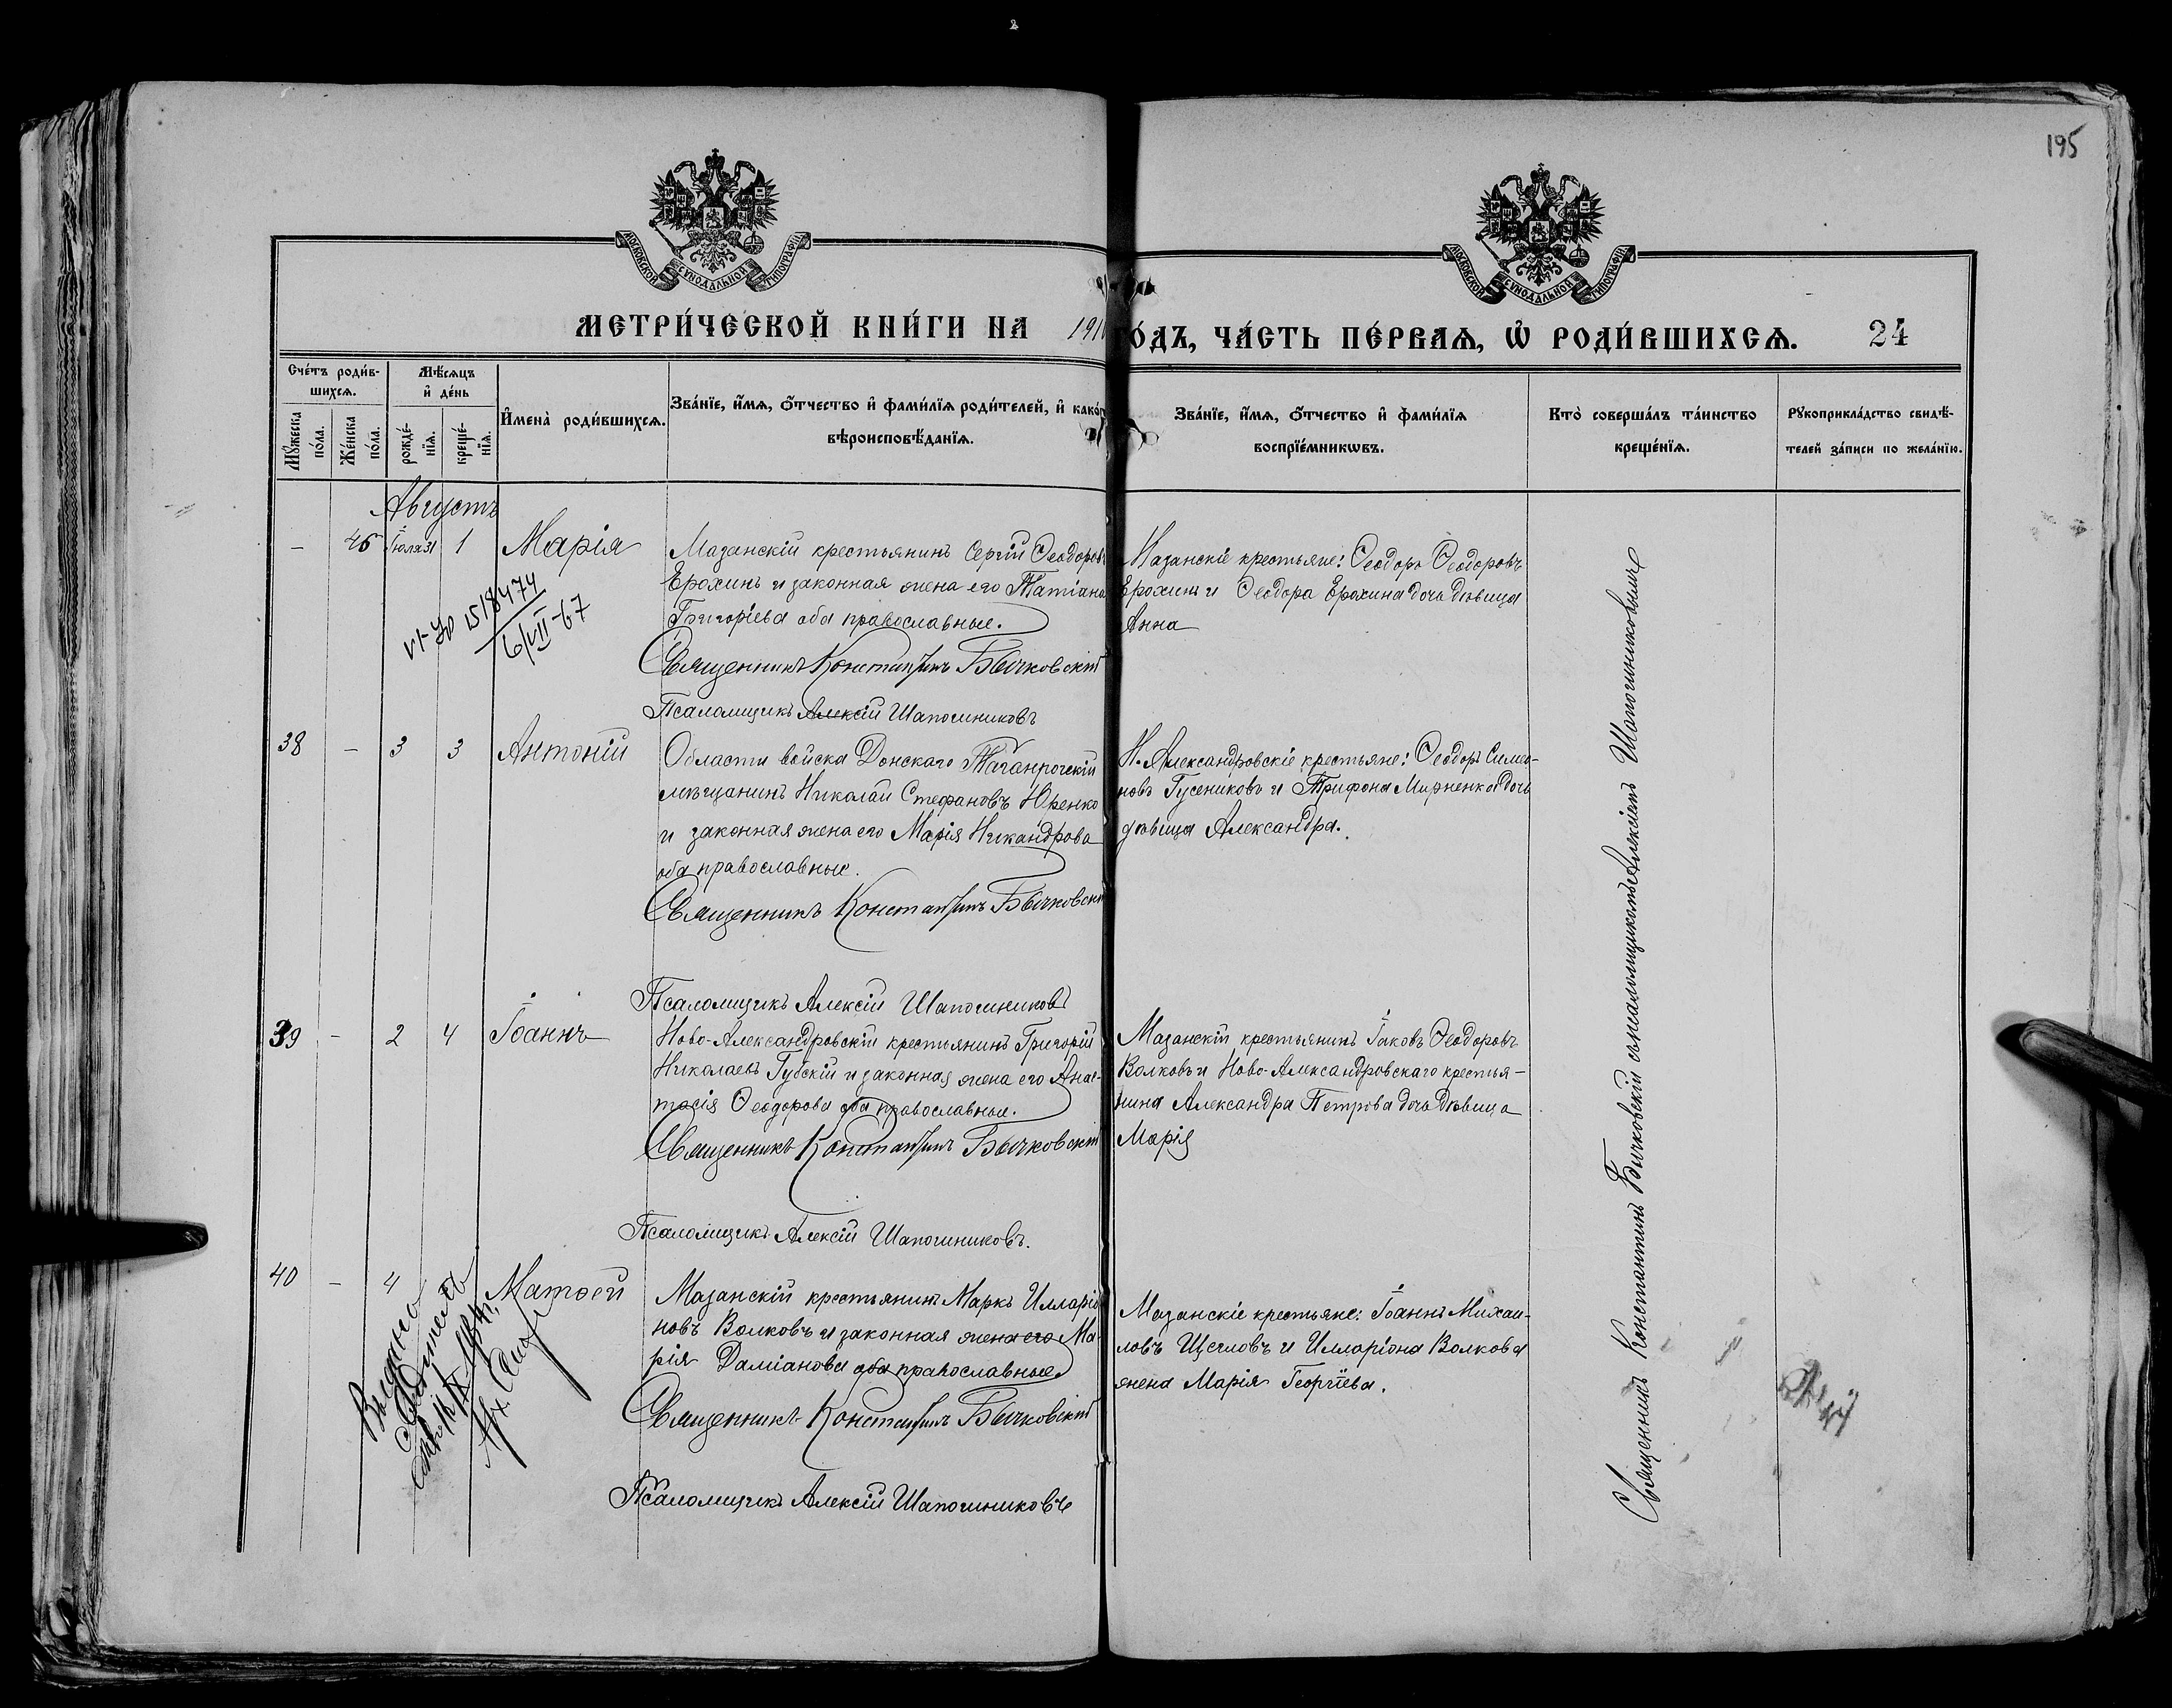 195
МОСКОВСКОЙ СѴНОДАЛЬНОЙ ТИПОГРАФІИ
МОСКОВСКОЙ СѴНОДАЛЬНОЙ ТИПОГРАФІИ
МЕТРИ́ЧЕСКОЙ КНИ́ГИ НА 191
ГО́ДЪ, ЧА́СТЬ ПЕ́РВАѦ, Ѡ҆ РОДИ́ВШИХСѦ. 24
Сче́тъ роди́в-
шихсѧ.
Мꙋ́жеска по́ла.
Же́нска по́ла.
Мѣ́сѧцъ
и҆ де́нь
рожде́-
нїѧ.
креще́-
нїѧ.
И҆мена̀ роди́вшихсѧ.
Зва́нїе, и҆́мѧ, ѻ҆́тчество и҆ фами́лїѧ роди́телей, и҆ како́г
вѣроисповѣ́данїѧ.
Зва́нїе, и҆́мѧ, ѻ҆́тчество и҆ фами́лїѧ
воспрїе́мникѡвъ.
Кто̀ соверша́лъ та́инство
креще́нїѧ.
Рꙋкоприкла́дство свидѣ́-
телей за́писи по жела́нїю.
Августъ
— 46 Іюля 31 1 Марія
Мазанскій крестьянинъ Сергій Ѳеодоров
Ерохинъ и законная жена его Татіана
Григоріева оба православные.
Священникъ Константинъ Бычковскій
Псаломщикъ Алексій Шапошниковъ
Мазанскіе крестьяне: Ѳеодоръ Ѳеодоровъ
Ерохинъ и Ѳеодора Ерохина дочь дѣвица
Анна
1518474
6/VII-67
38 — 3 3 Антоній
Области войска Донскаго Таганрогскій
мѣщанинъ Николай Стефановъ Юренко
и законная жена его Марія Никандрова
оба православные.
Священникъ Константинъ Бычковскі
Псаломщикъ Алексій Шапошниковъ
Н. Александровскіе крестьяне: Ѳеодоръ Симео-
новъ Гусениковъ и Трифона Мирненка дочь
дѣвица Александра.
39 — 2 4 Іоаннъ
Ново-Александровскій крестьянинъ Григорій
Николаевъ Губскій и законная жена его Анас-
тасія Ѳеодорова оба православные.
Священникъ Константинъ Бычковскій
Псаломщикъ Алексій Шапошниковъ.
Мазанскій крестьянинъ Іаковъ Ѳеодоровъ
Волковъ и Ново-Александровскаго крестья-
нина Александра Петрова дочь дѣвица
Марія
40 — 4 Матѳей
Мазанскій крестьянинъ Маркъ Илларіо
новъ Волковъ и законная жена его Ма-
рія Даміанова оба православные
Священникъ Константинъ Бычковскій
Псаломщикъ Алексій Шапошниковъ
Мазанскіе крестьяне: Іоаннъ Михаи-
ловъ Щегловъ и Илларіона Волкова
жена Марія Георгіева.
Выдано
Священникъ Константинъ Бычковскій съ псаломщикомъ Алексіемъ Шапошниковымъ